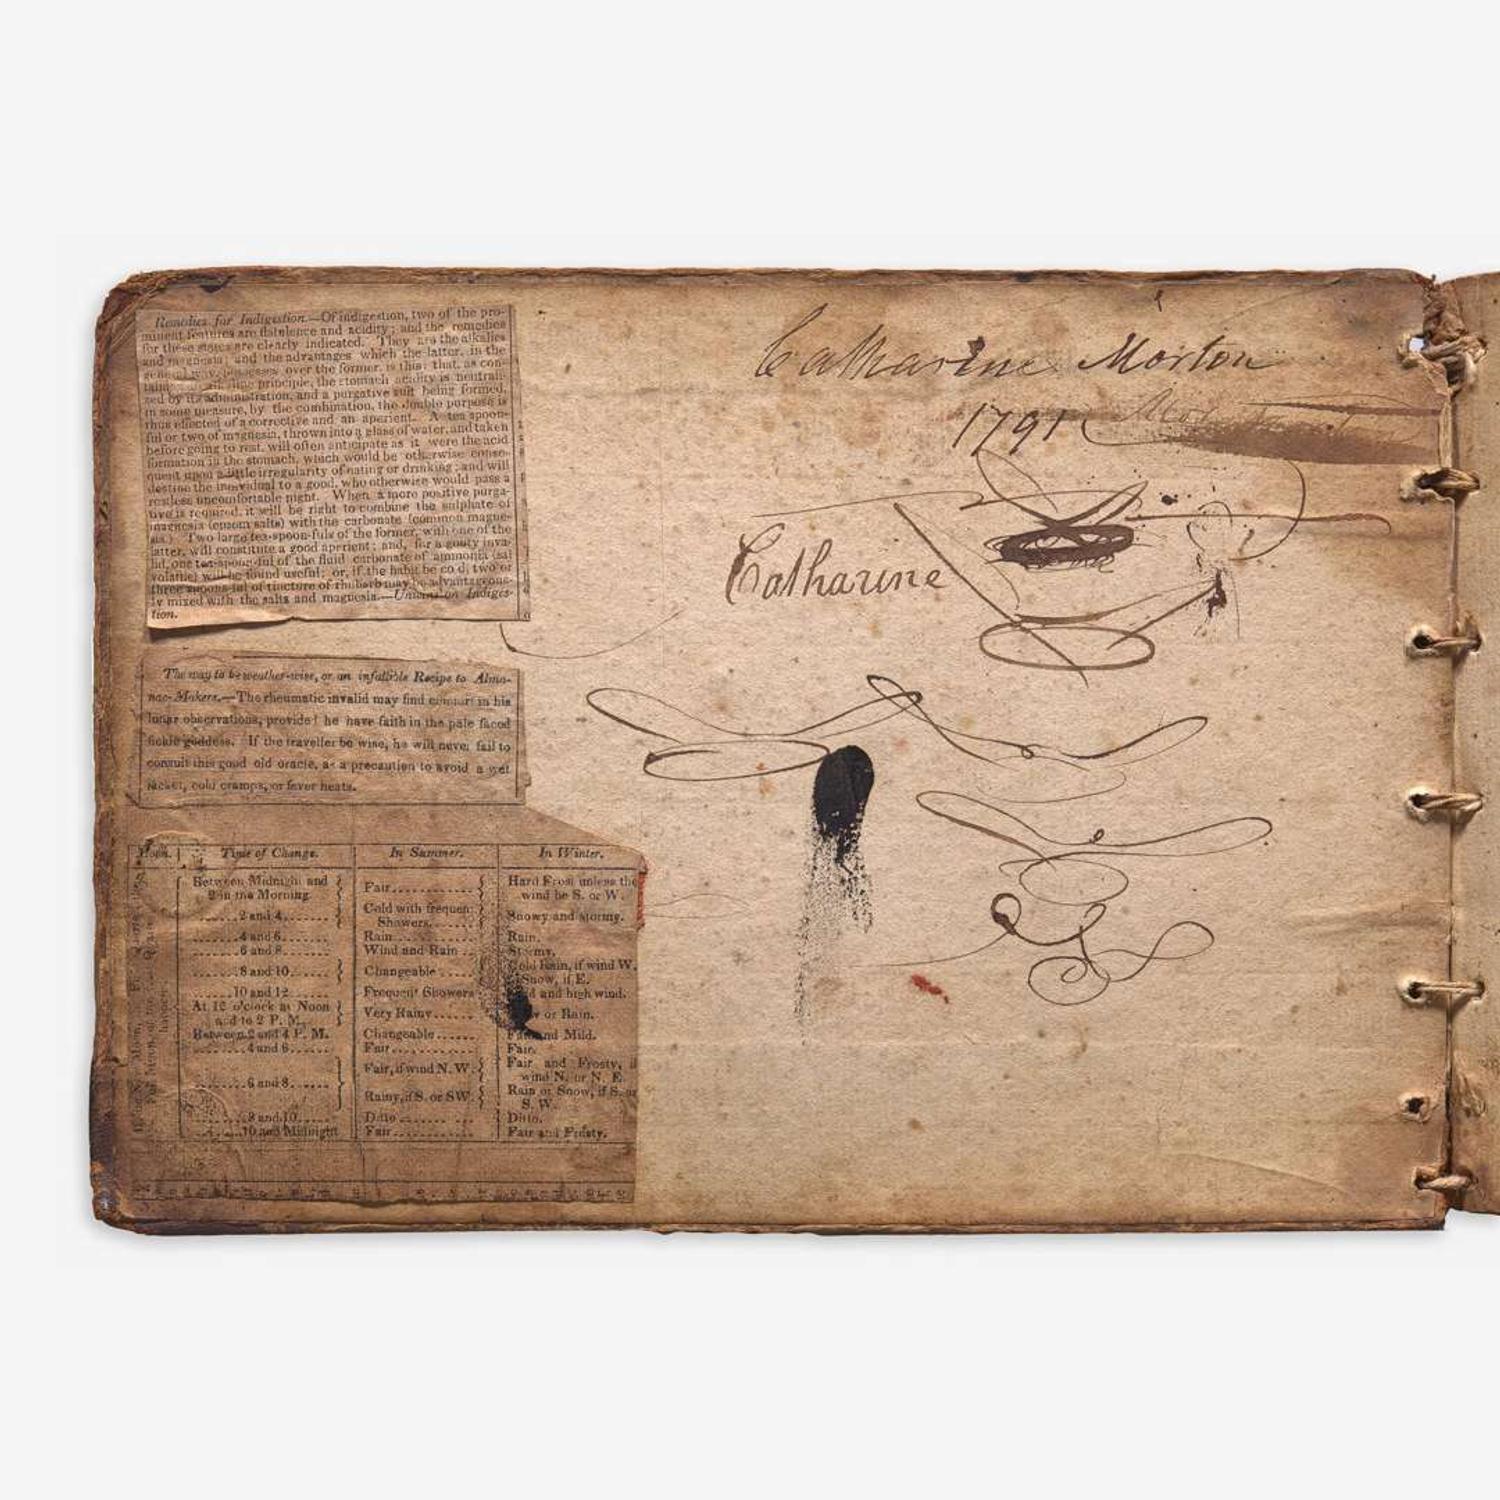 Remedies for Indigestion.—Of indigestion, two of the pro-
minent features are flatulence and acidity; and the remedies
for these states are clearly indicated. They are the alkalies
and magnesia; and the advantages which the latter, in the
general way, possesses over the former, is this: that, as con-
principle, the stomach acidity is neutrali-
zed by its administration, and a purgative salt being formed,
in some measure, by the combination, the double purpose is
thus effected of a corrective and an aperient. A tea spoon-
ful or two of magnesia, thrown into a glass of water, and taken
before going to rest, will often anticipate as it were the acid
formation in the stomach, which would be otherwise conse-
quent upon a little irregularity of eating or drinking; and will
destine the individual to a good, who otherwise would pass a
restless uncomfortable night. When a more positive purga-
tive is required, it will be right to combine the sulphate of
magnesia (epsom salts) with the carbonate (common magne-
sia.) Two large tea-spoon-fuls of the former, with one of the
latter, will constitute a good aperient; and, for a gouty inva-
lid, one tea-spoon-ful of the fluid carbonate of ammonia (sal
volatile) will be found useful; or, if the habit be cold, two or
three spoons-ful of tincture of rhubarb may be advantageous-
ly mixed with the salts and magnesia.— on Indiges-
tion.
The way to be weather-wise, or an infallible Recipe to Alma-
nac-Makers.—The rheumatic invalid may find comfort in his
lunar observations, provided he have faith in the pale faced
fickle goddess. If the traveller be wise, he will never fail to
consult this good old oracle, as a precaution to avoid a wet
jacket, cold cramps, or fever heats.
Moon. Time of Change. In Summer. In Winter.
Between Midnight and
2 in the Morning. Fair Hard Frost unless the
wind be S. or W.
2 and 4 Cold with frequent
Showers. Snowy and stormy.
4 and 6 Rain Rain.
6 and 8 Wind and Rain Stormy.
8 and 10 Changeable Cold Rain, if wind W.
Snow, if E.
10 and 12 Frequent Showers and high wind.
At 12 o'clock at Noon
and to 2 P. M. Very Rainy or Rain.
Between 2 and 4 P. M. Changeable Fair and Mild.
4 and 6 Fair Fair.
6 and 8 Fair, if wind N. W. Fair and Frosty, if
wind N. or N. E.
Rainy, if S. or SW. Rain or Snow, if S. or
S. W.
8 and 10 Ditto Ditto.
10 and Midnight Fair Fair and Frosty.
Catharine Morton
1791
Catharine